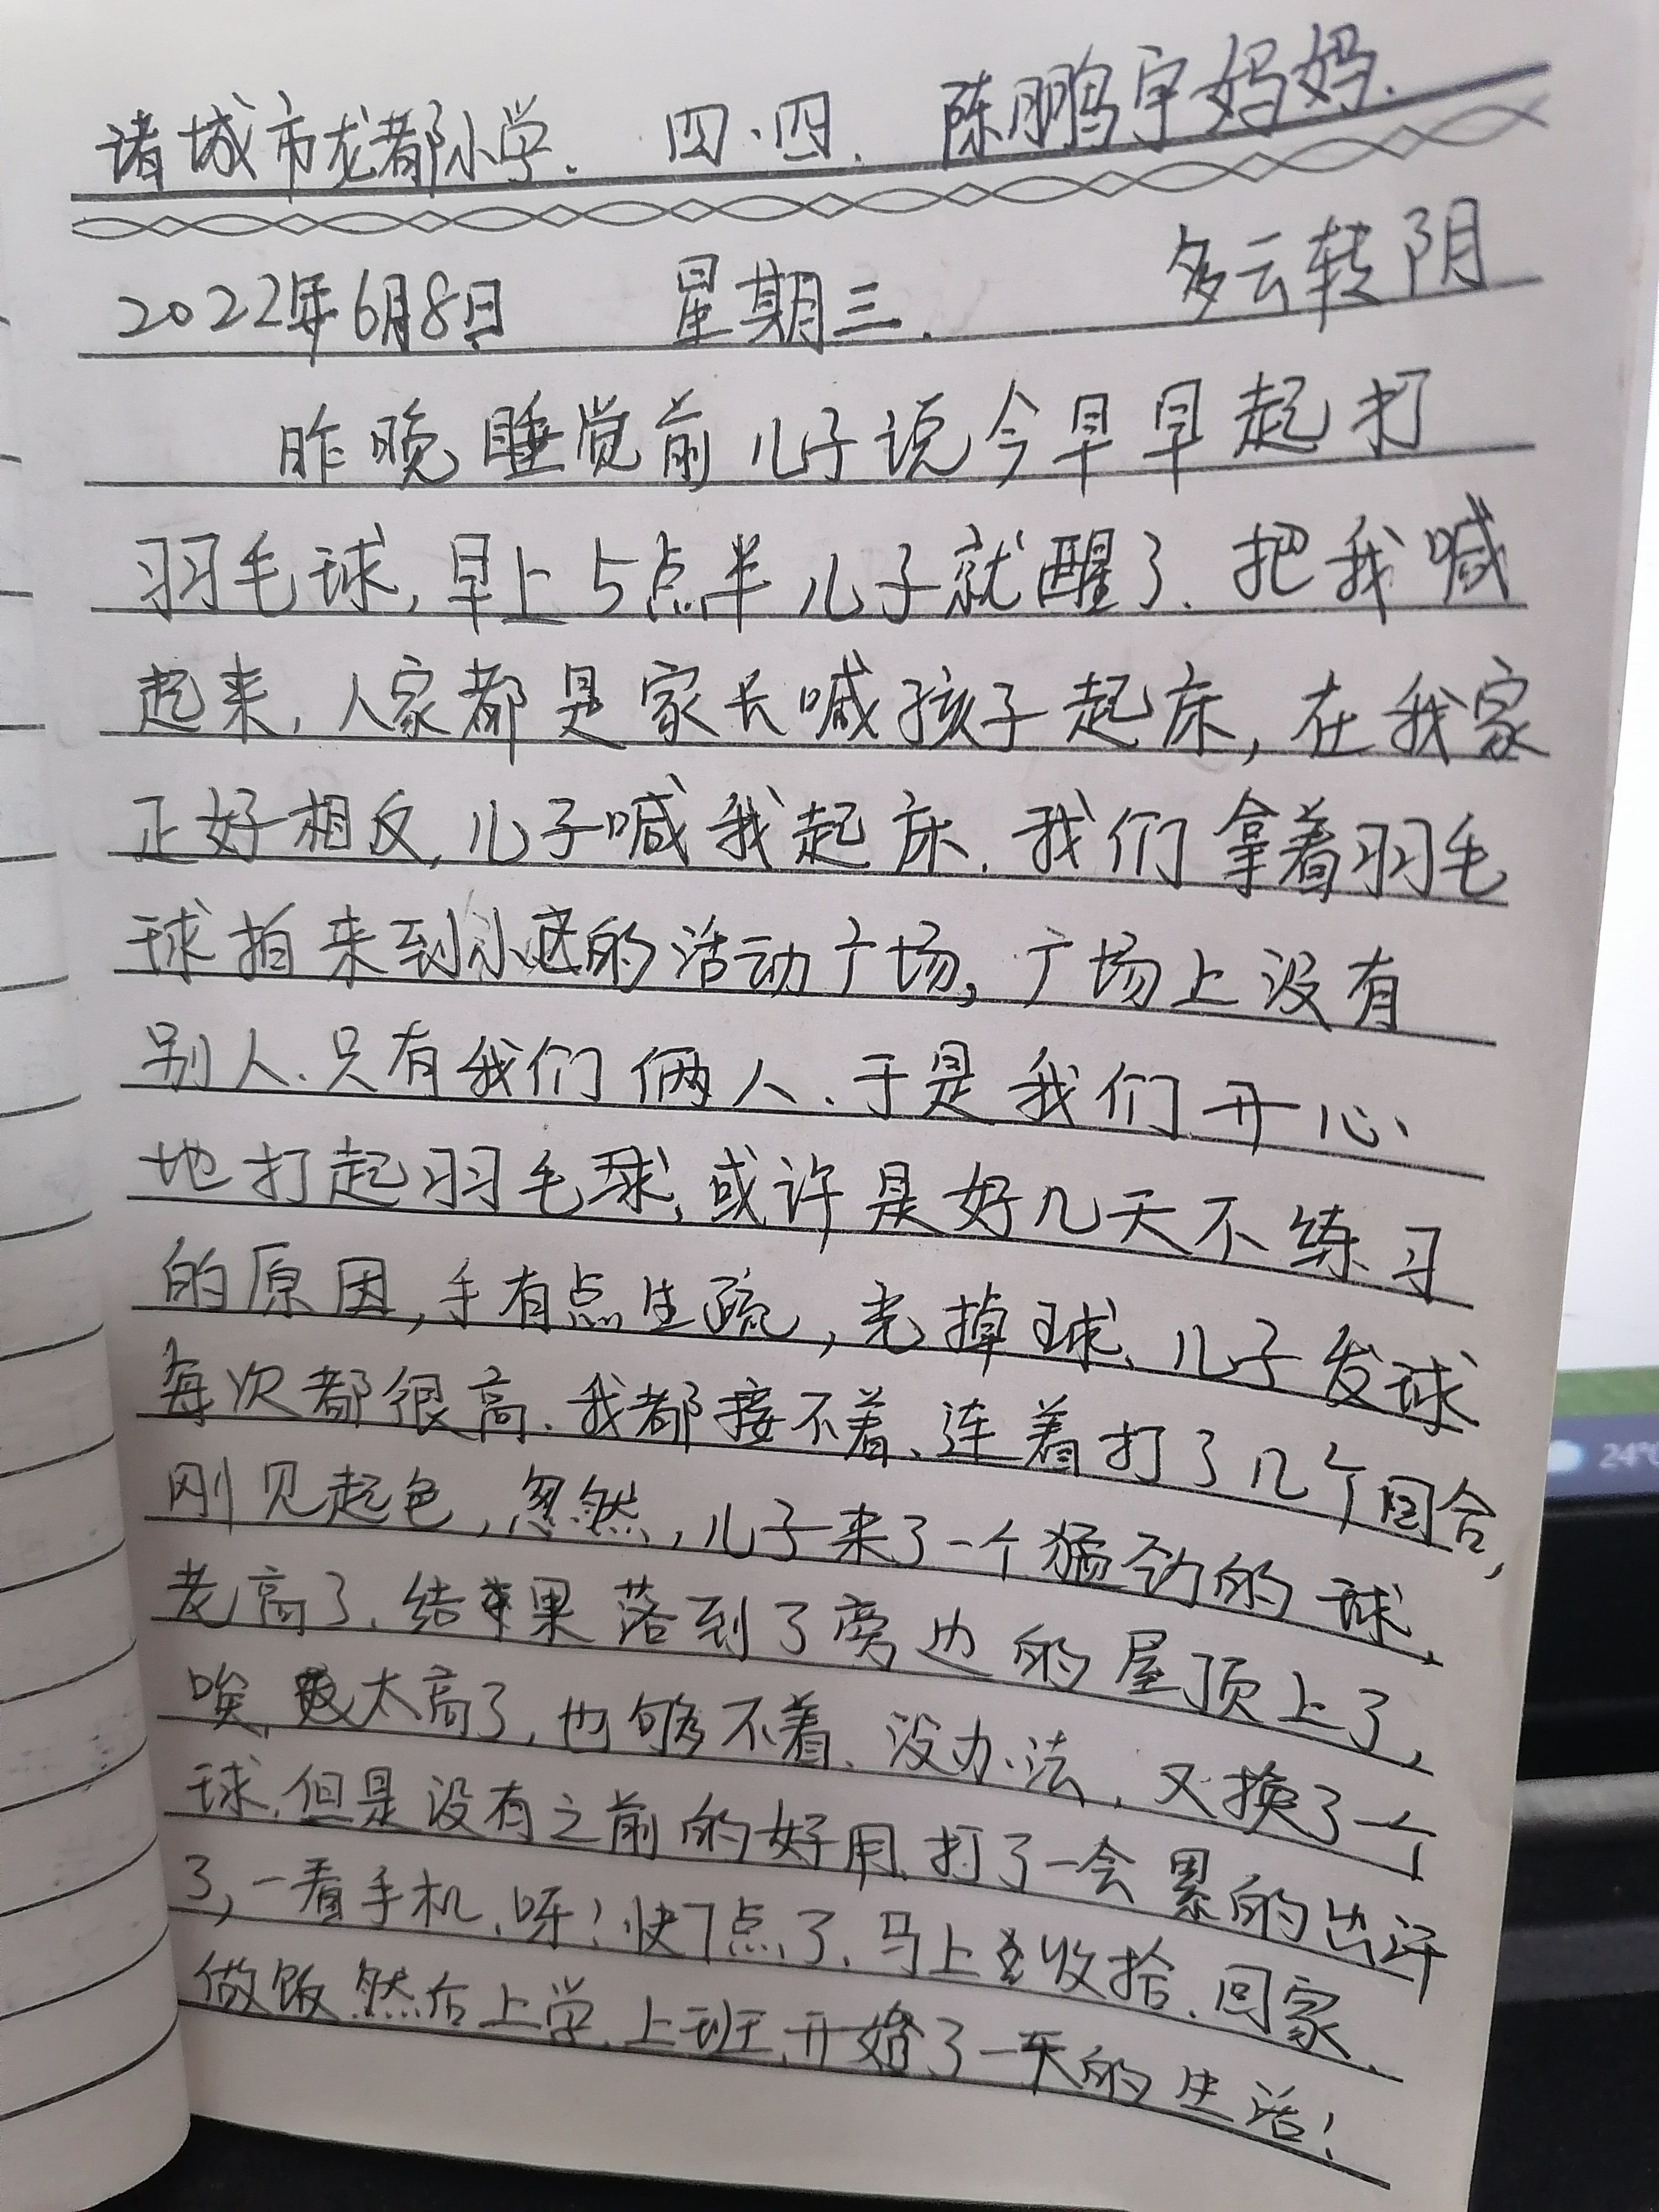 诸城市龙都小学. 四.四. 陈鹏宇妈妈.
2022年6月8日 星期三. 多云转阴
昨晚睡觉前儿子说今早早起打
羽毛球,早上5点半儿子就醒了.把我喊
起来,人家都是家长喊孩子起床,在我家
正好相反,儿子喊我起床.我们拿着羽毛
球拍来到小区的活动广场,广场上没有
别人.只有我们俩人.于是我们开心
地打起羽毛球,或许是好几天不练习
的原因,手有点生疏,光掉球、儿子发球
每次都很高.我都接不着、连着打了几个回合,
刚见起色,忽然,儿子来了一个猛劲的球,
老高了.结果落到了旁边的屋顶上了,
唉,太高了,也够不着、没办法,又换了一个
球.但是没有之前的好用.打了一会累的出汗
了,一看手机、呀!快7点了.马上收拾、回家、
做饭.然后上学.上班.开始了一天的生活!
24°C